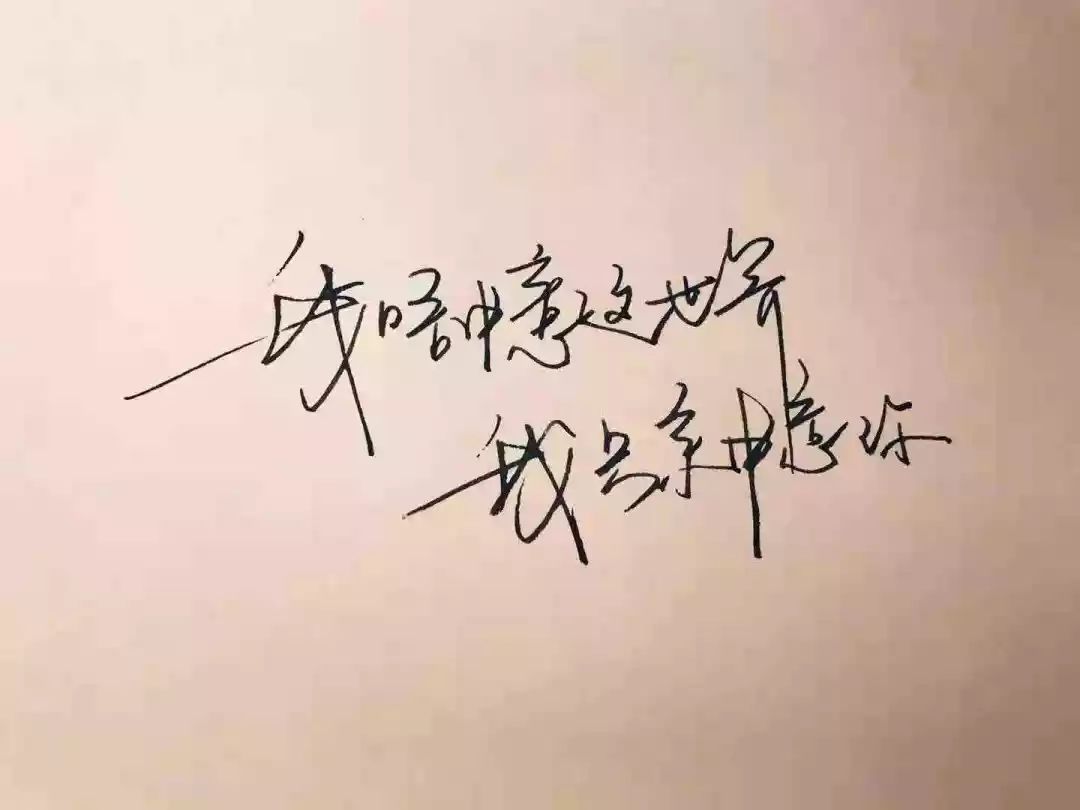 我唔中意这世界
我只系中意你